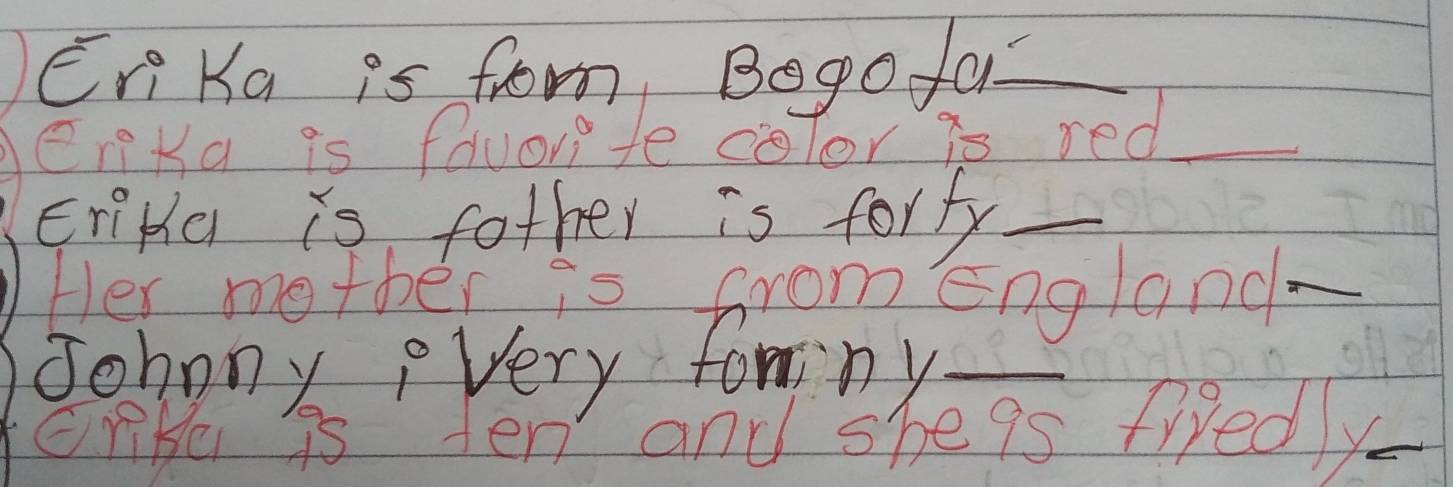 Erika is from, Bogotá
Erika is favorite color is red
Erika is father is forty
Her mother is from England
Johnny i very fominy
Erika is ten and she is friedly